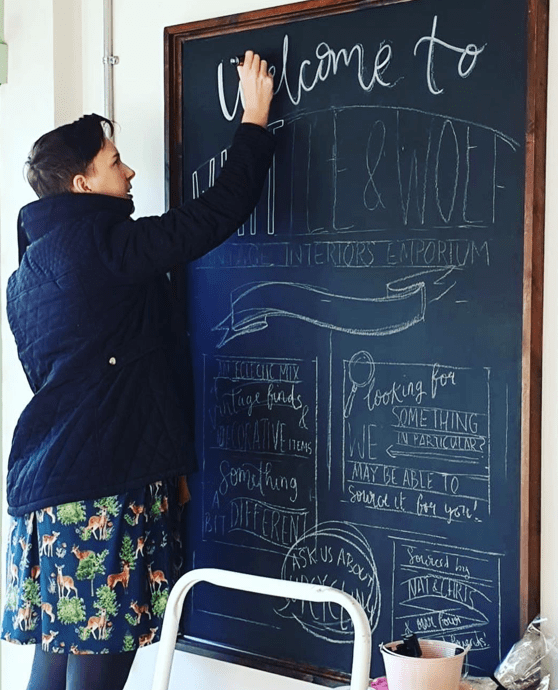 Welcome to
WHITE & WOLF
VINTAGE INTERIORS EMPORIUM
AN ECLECTIC MIX
Vintage finds
&
DECORATIVE ITEMS
Something
A BIT DIFFERENT
Looking for
SOMETHING
IN PARTICULAR?
WE
MAY BE ABLE TO
Source it for you!
ASK US ABOUT
UPCYCLING
Sourced by
NAT & CHRIS
& our four